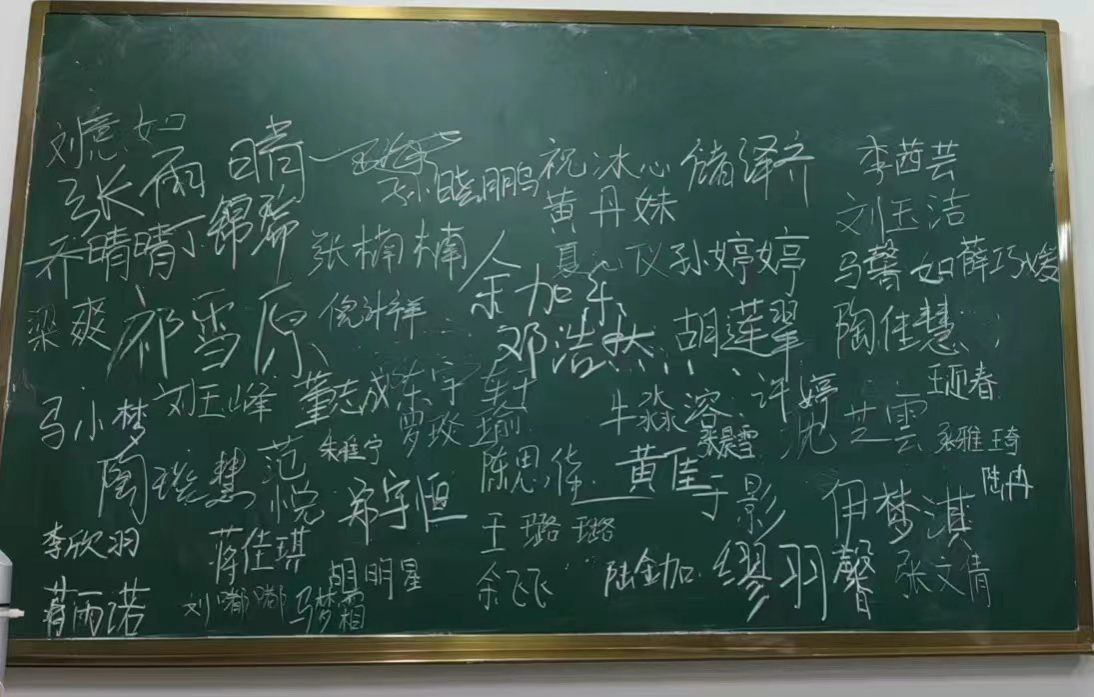 刘意如
张雨晴
孙晓鹏 祝冰心 储泽齐 李茜芸
黄丹妹 刘玉洁
乔晴晴 丁锦瑜 张楠楠 夏心仪 孙婷婷 马馨如 薛巧媛
余加乐
梁爽 祁雪原 倪计祥 邓浩然 胡莲翠 陶佳慧
王迎春
马小梦 刘玉峰 董志成 东宇 车瑜 牛淼溶 许婷
贾姣 张晨雪 沈芝雲 张雅琦
陶璇慧 范悦 朱雅宁 陈思佳 黄佳 于影 陆冉
郑宇恒 伊梦淇
李欣羽 蒋佳琪 王璐璐
胡明星 余飞飞 陆金加 缪羽馨 张文倩
葛雨诺 刘嘟嘟 马梦霜